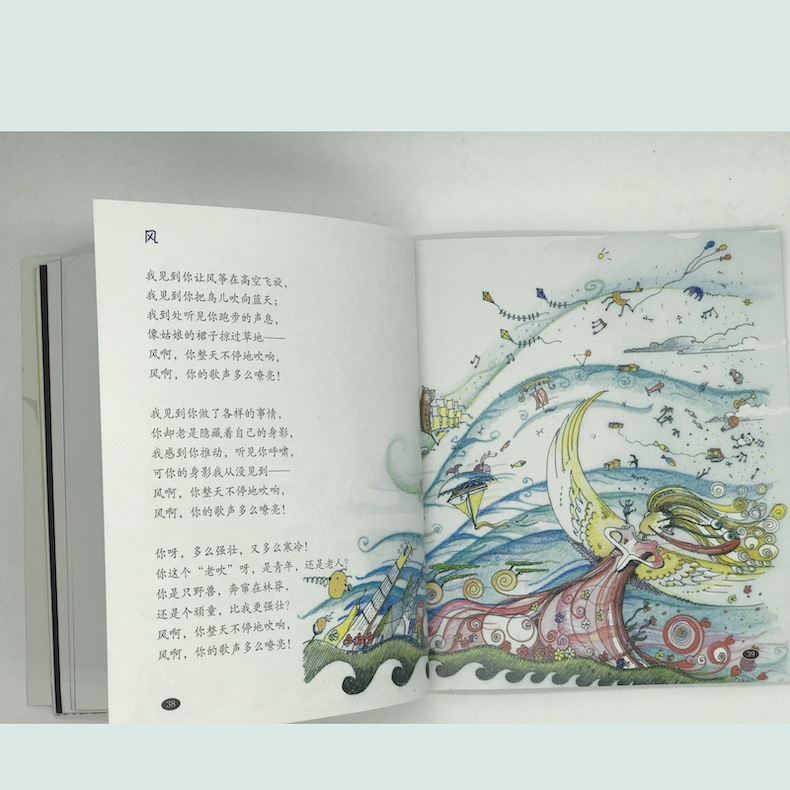 风
我见到你让风筝在高空飞旋，
我见到你把鸟儿吹向蓝天；
我到处听见你跑步的声息，
像姑娘的裙子掠过草地——
风啊，你整天不停地吹响，
风啊，你的歌声多么嘹亮！
我见到你做了各样的事情，
你却老是隐藏着自己的身影，
我感到你推动，听见你呼啸，
可你的身影我从没见到——
风啊，你整天不停地吹响，
风啊，你的歌声多么嘹亮！
你呀，多么强壮，又多么寒冷！
你这个“老吹”呀，是青年，还是老人？
你是只野兽，奔窜在林莽，
还是个顽童，比我更强壮？
风啊，你整天不停地吹响，
风啊，你的歌声多么嘹亮！
38
39